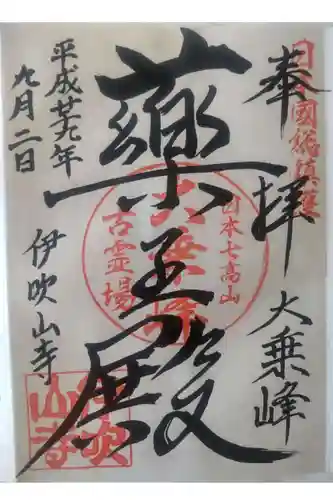 奉拝
大乗峰
日本國総鎮護
薬王殿
日本七高山
大乗峰
古霊場
平成廿九年
九月二日
伊吹山寺
伊吹
山寺